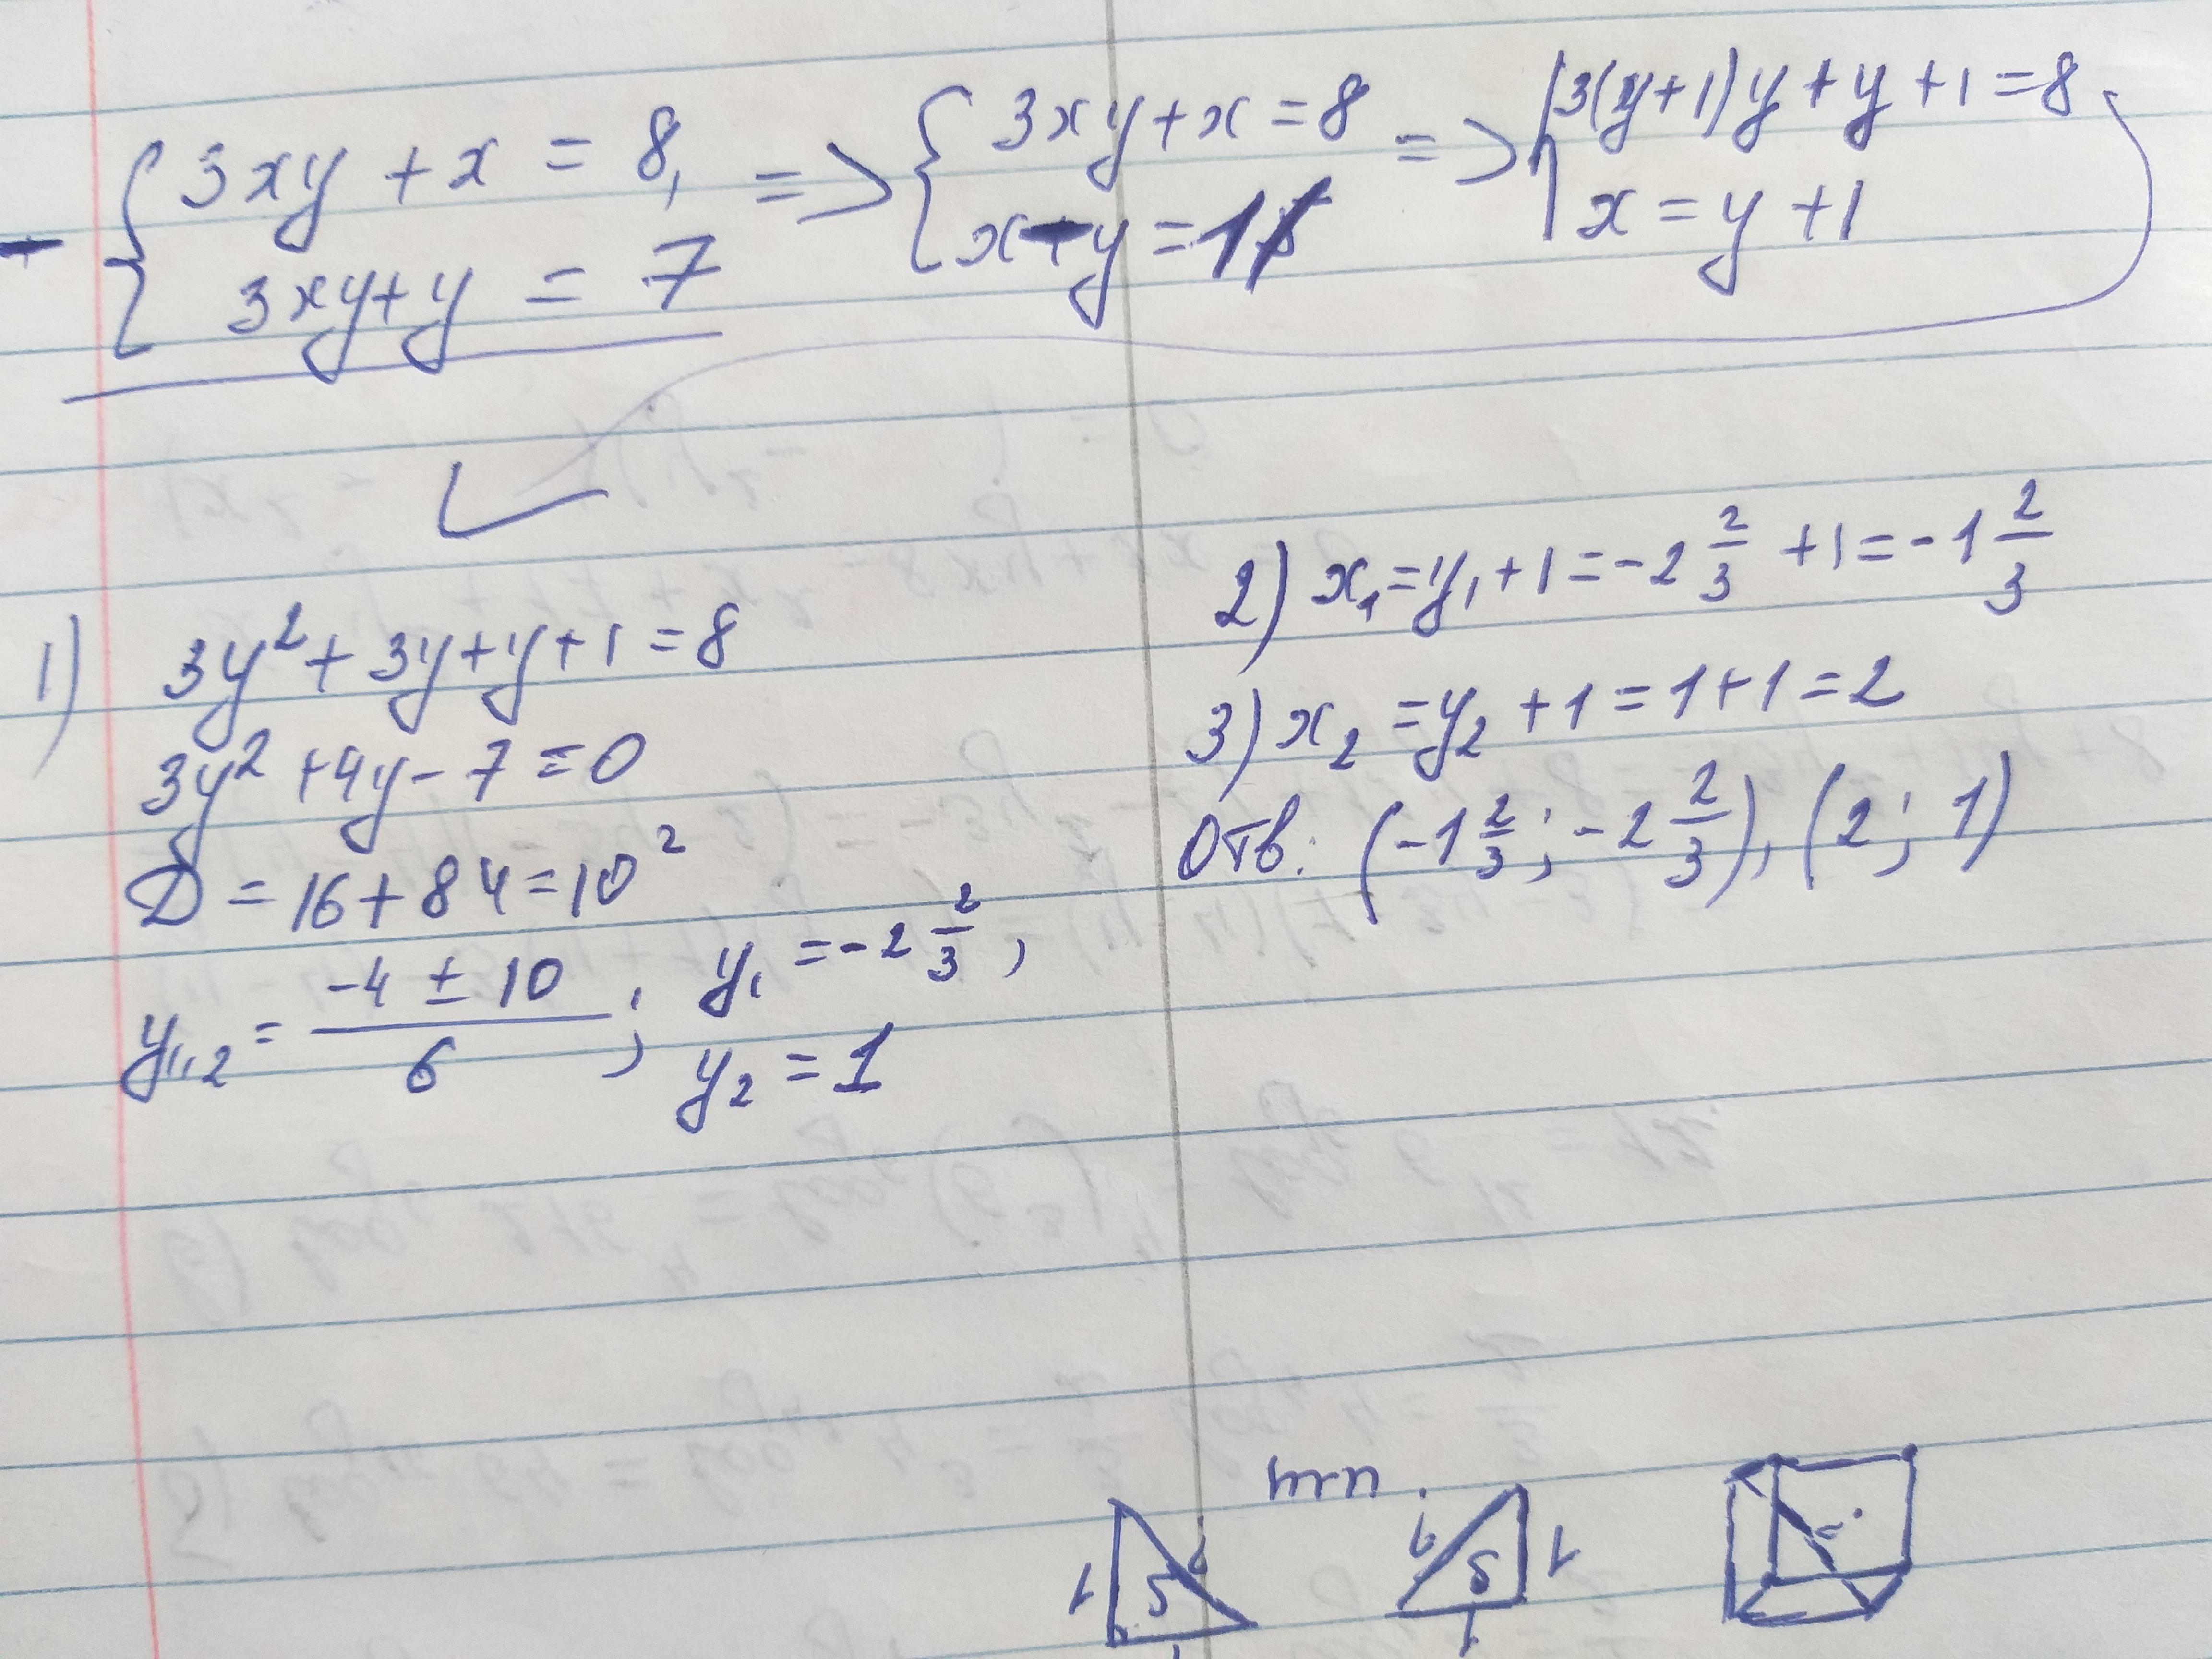 {3xy + x = 8, => {3xy + x = 8 => {3(y+1)y + y + 1 = 8
3xy + y = 7 x - y = 1 x = y + 1
1) 3y² + 3y + y + 1 = 8
3y² + 4y - 7 = 0
D = 16 + 84 = 10²
y₁,₂ = (-4 ± 10)/6 ; y₁ = -2 2/3 ,
y₂ = 1
2) x₁ = y₁ + 1 = -2 2/3 + 1 = -1 2/3
3) x₂ = y₂ + 1 = 1 + 1 = 2
Отв: (-1 2/3 ; -2 2/3), (2 ; 1)